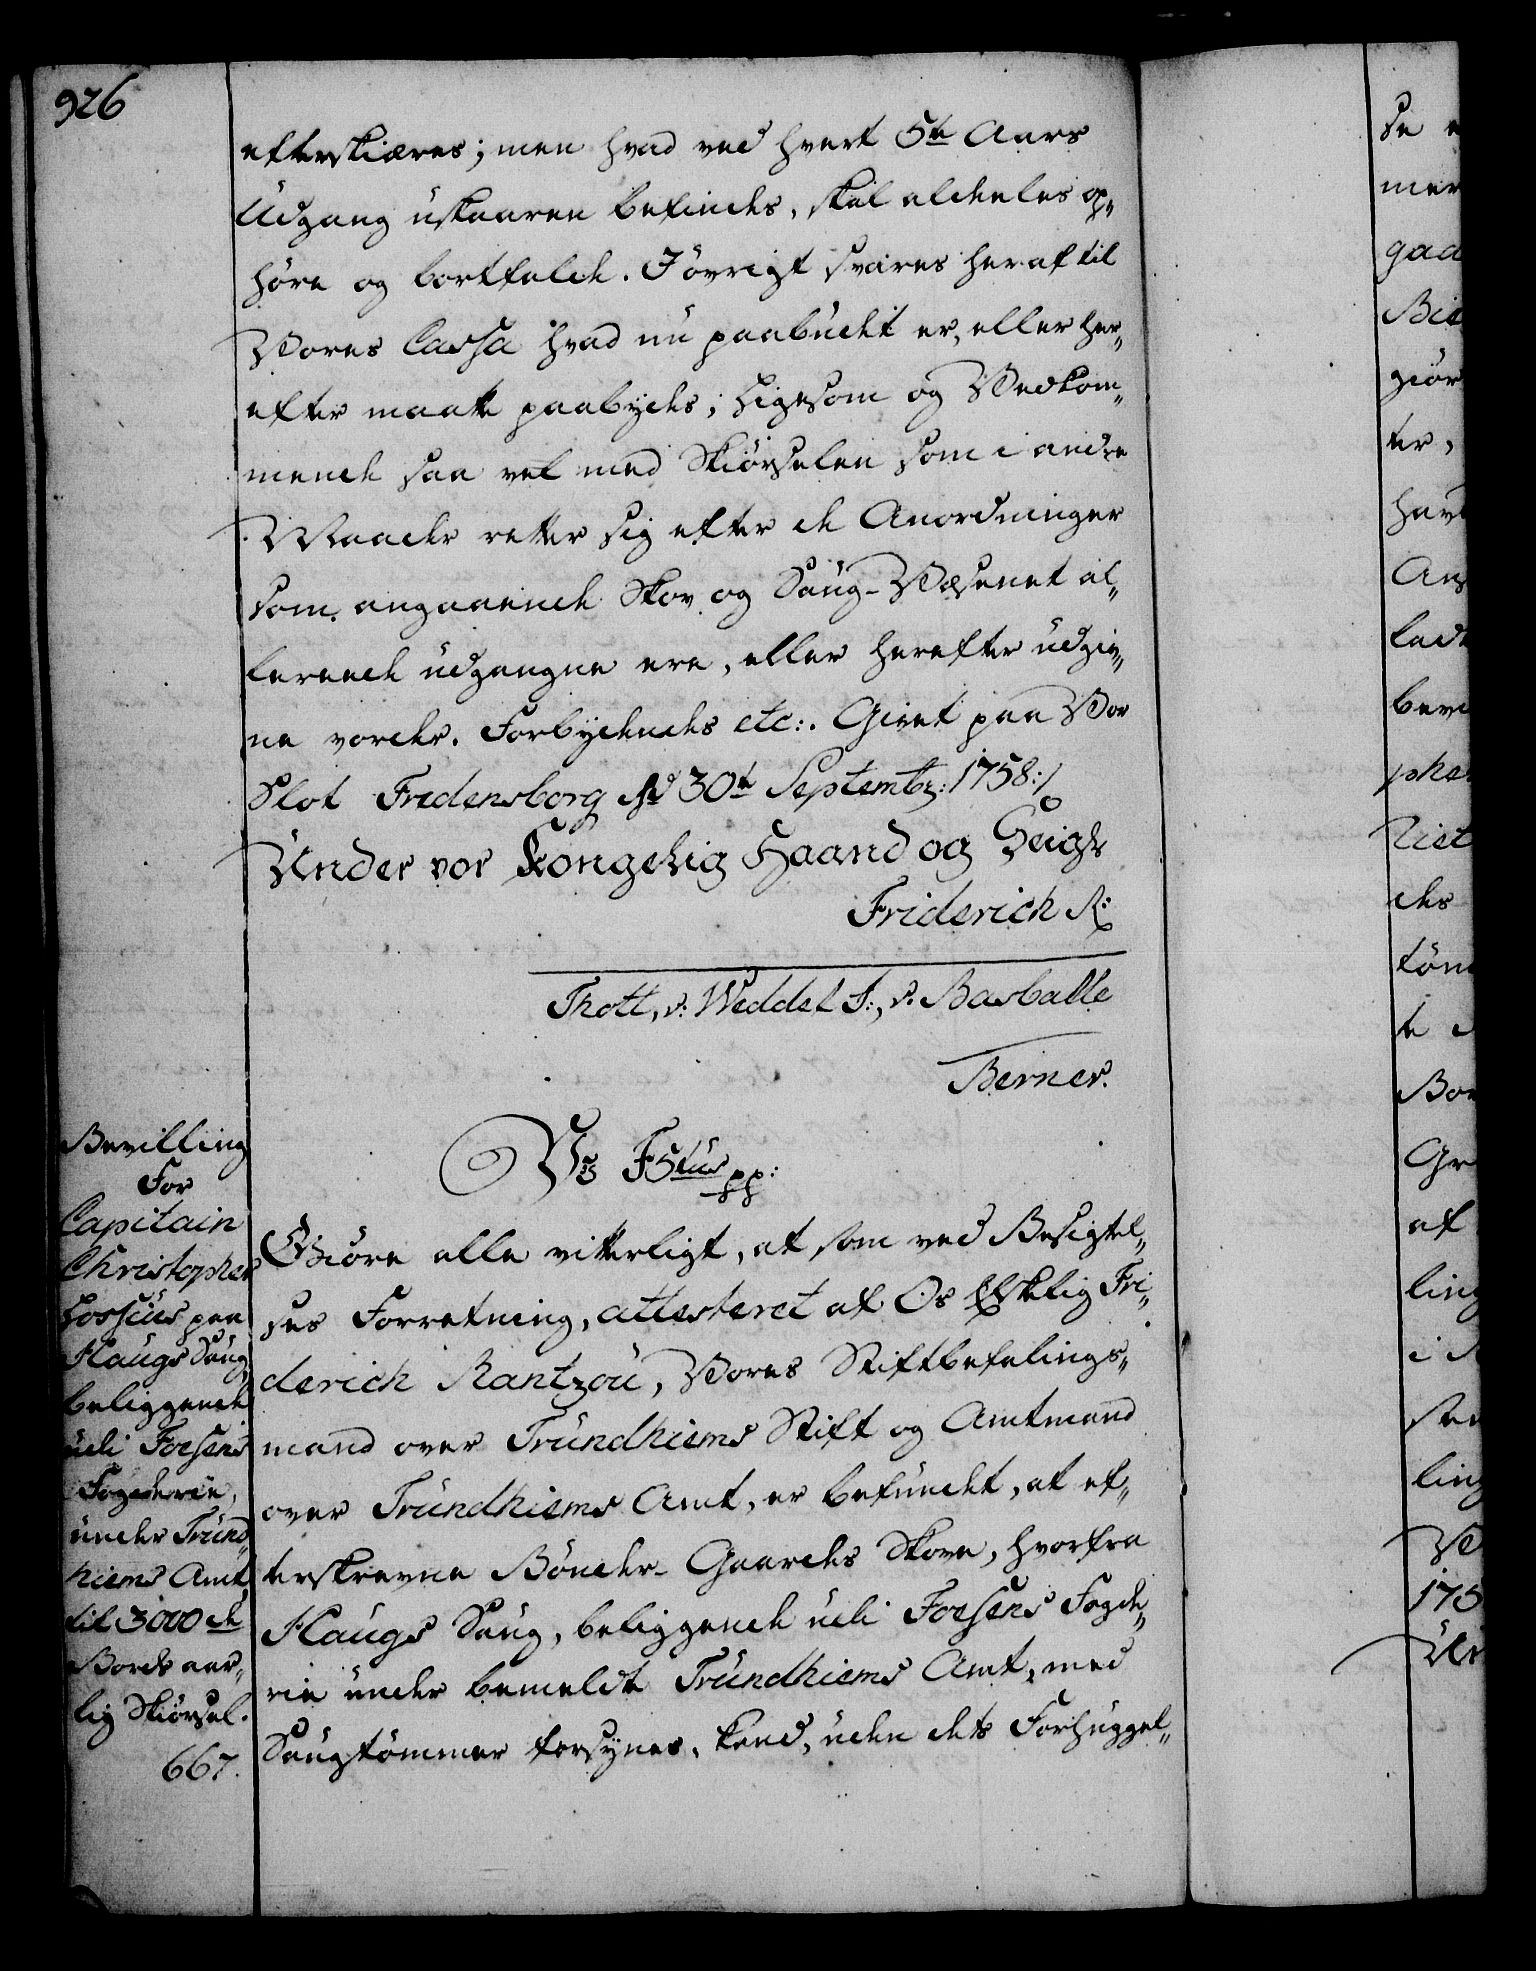 926
efterskiæres; men hvad ved hvert 5te Aars
Udgang uskaaren befindes, skal aldeeles op„
höre og bortfalde. J övrigt svares heraf til
Vores Cassa hvad nu paabudet er, eller her„
efter maatte paabydes; Ligesom og Vedkom„
mende saa vel med Skiørselen som i andre
Maader retter sig efter de Anordninger
som angaaende Skov og Saug-Væsenet al„
lereede udgangne ere, eller herefter udgiv„
ne vorder. Forbydendes etc:. Givet paa Vor
Slot Fredensborg d. 30te Septembr: 1758:/
Under vor Kongelig Haand og Zeigl
Friderich R:
Thott, v: Weddel J:, v. Barballe
Berner.
Bevilling
For
Capitain
Christopher
Lossius paa
Haugs Saug
beliggende
udi Foesens
Fogderie,
under Trund„
hiems Amt,
til 3000de
Bords aar„
lig Skiørsel.
667.
Vi F5tus pp:
Giöre alle vitterligt, at som ved Besigtel„
ses Forretning, attesteret af Os Elskelig Fri„
derich Rantzou, Vores Stiftbefalings„
mand over Trundhiems Stift og Amtmand
over Trundhiems Amt, er befundet, at ef„
terskrevne Bönder-Gaardes Skove, hvorfra
Haugs Saug, beliggende udi Foesens Fogde„
rie under bemeldte Trundhiems Amt, med
Saugtömmer forsynes, kand, uden dets Forhuggel„